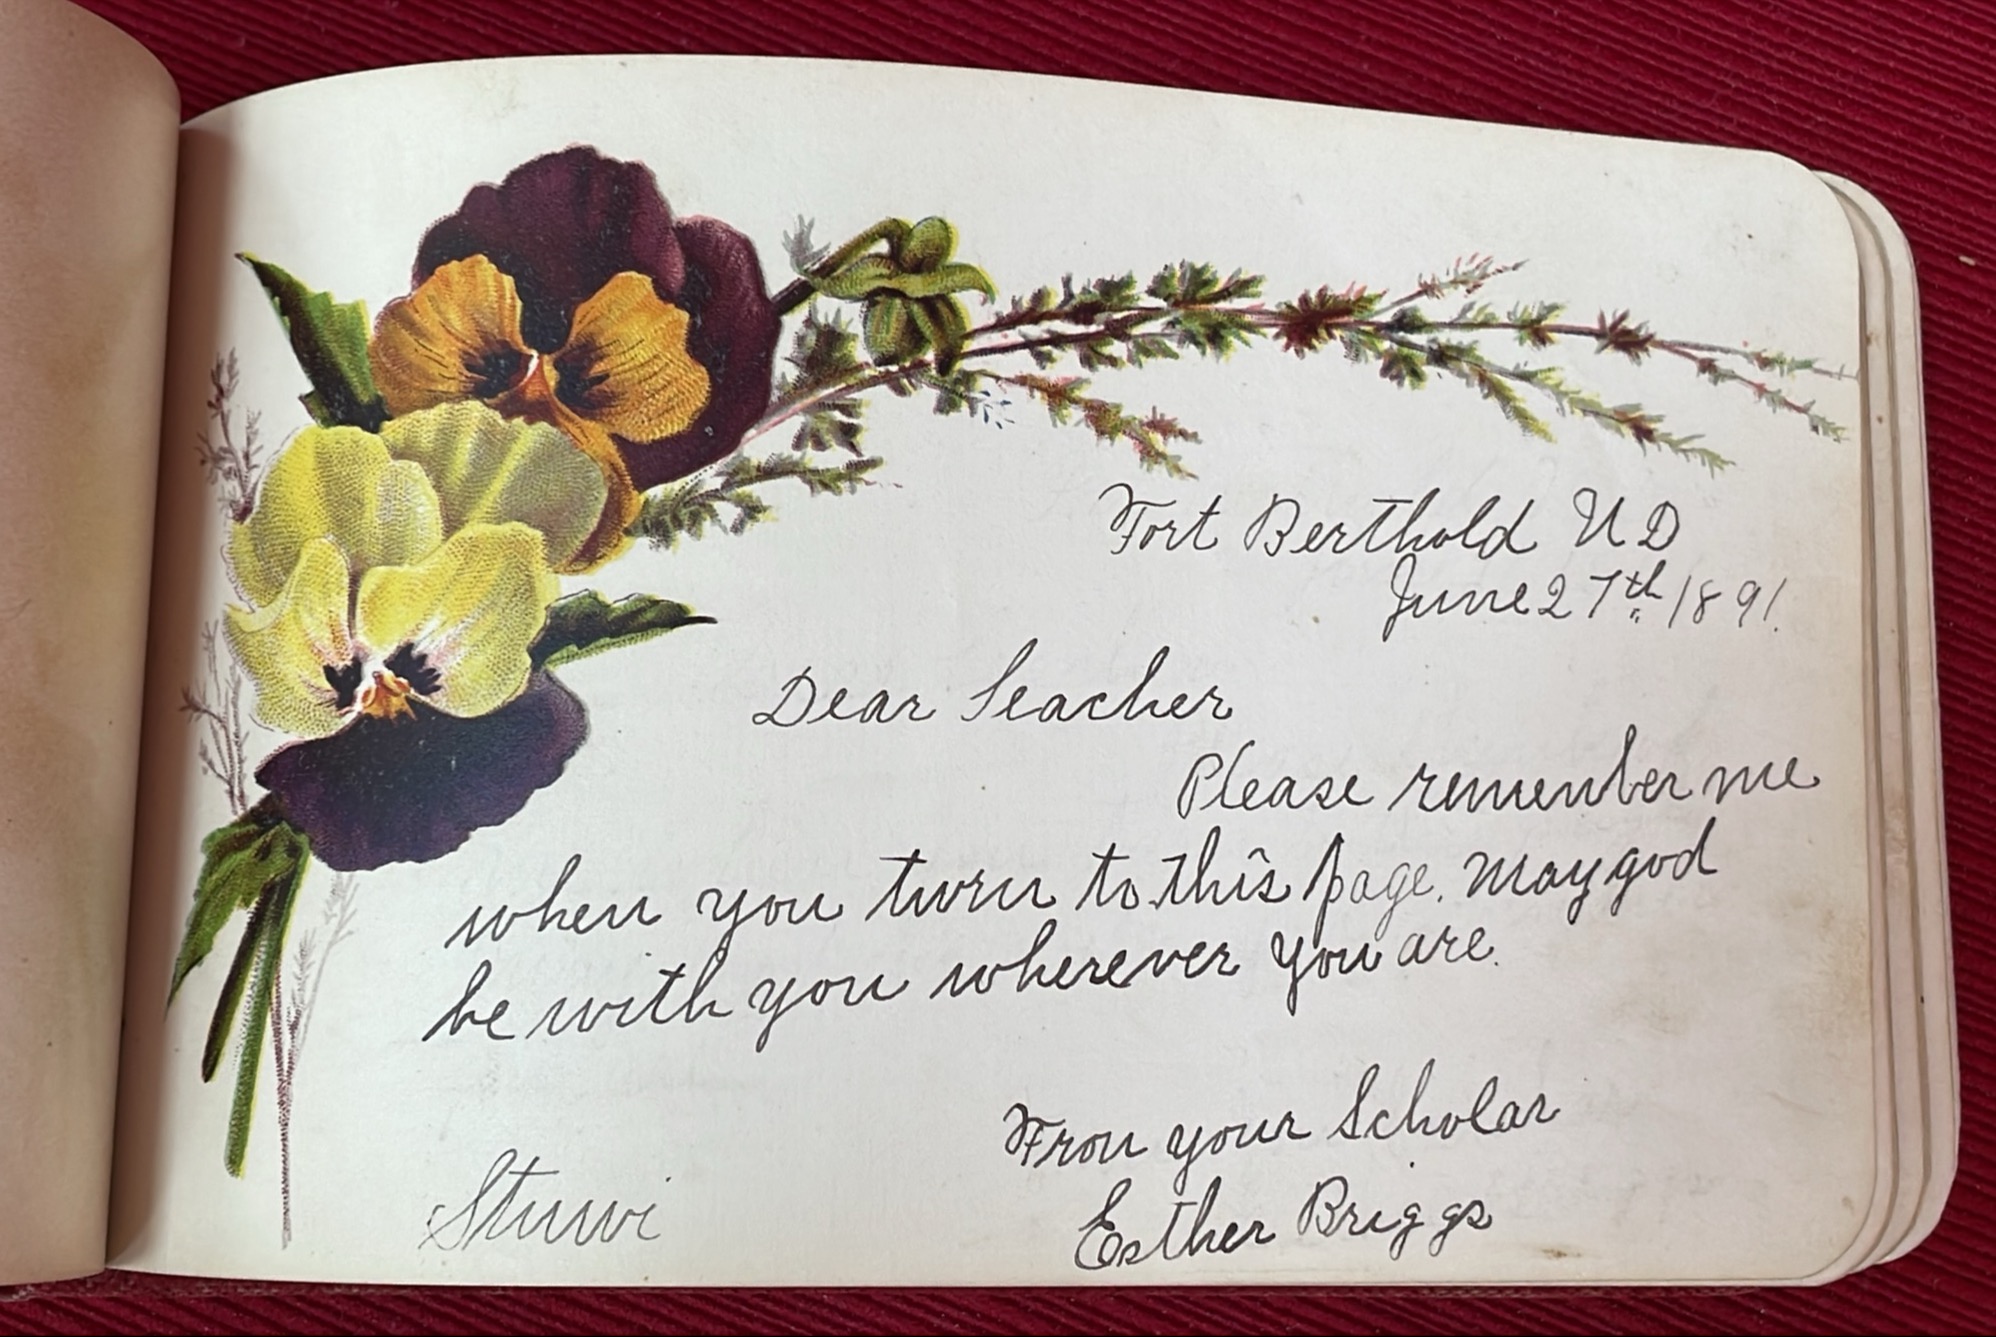 Fort Berthold N D
June 27th 1891.
Dear Teacher
Please remember me
when you turn to this page. May god
be with you wherever you are.
From your Scholar
Esther Briggs